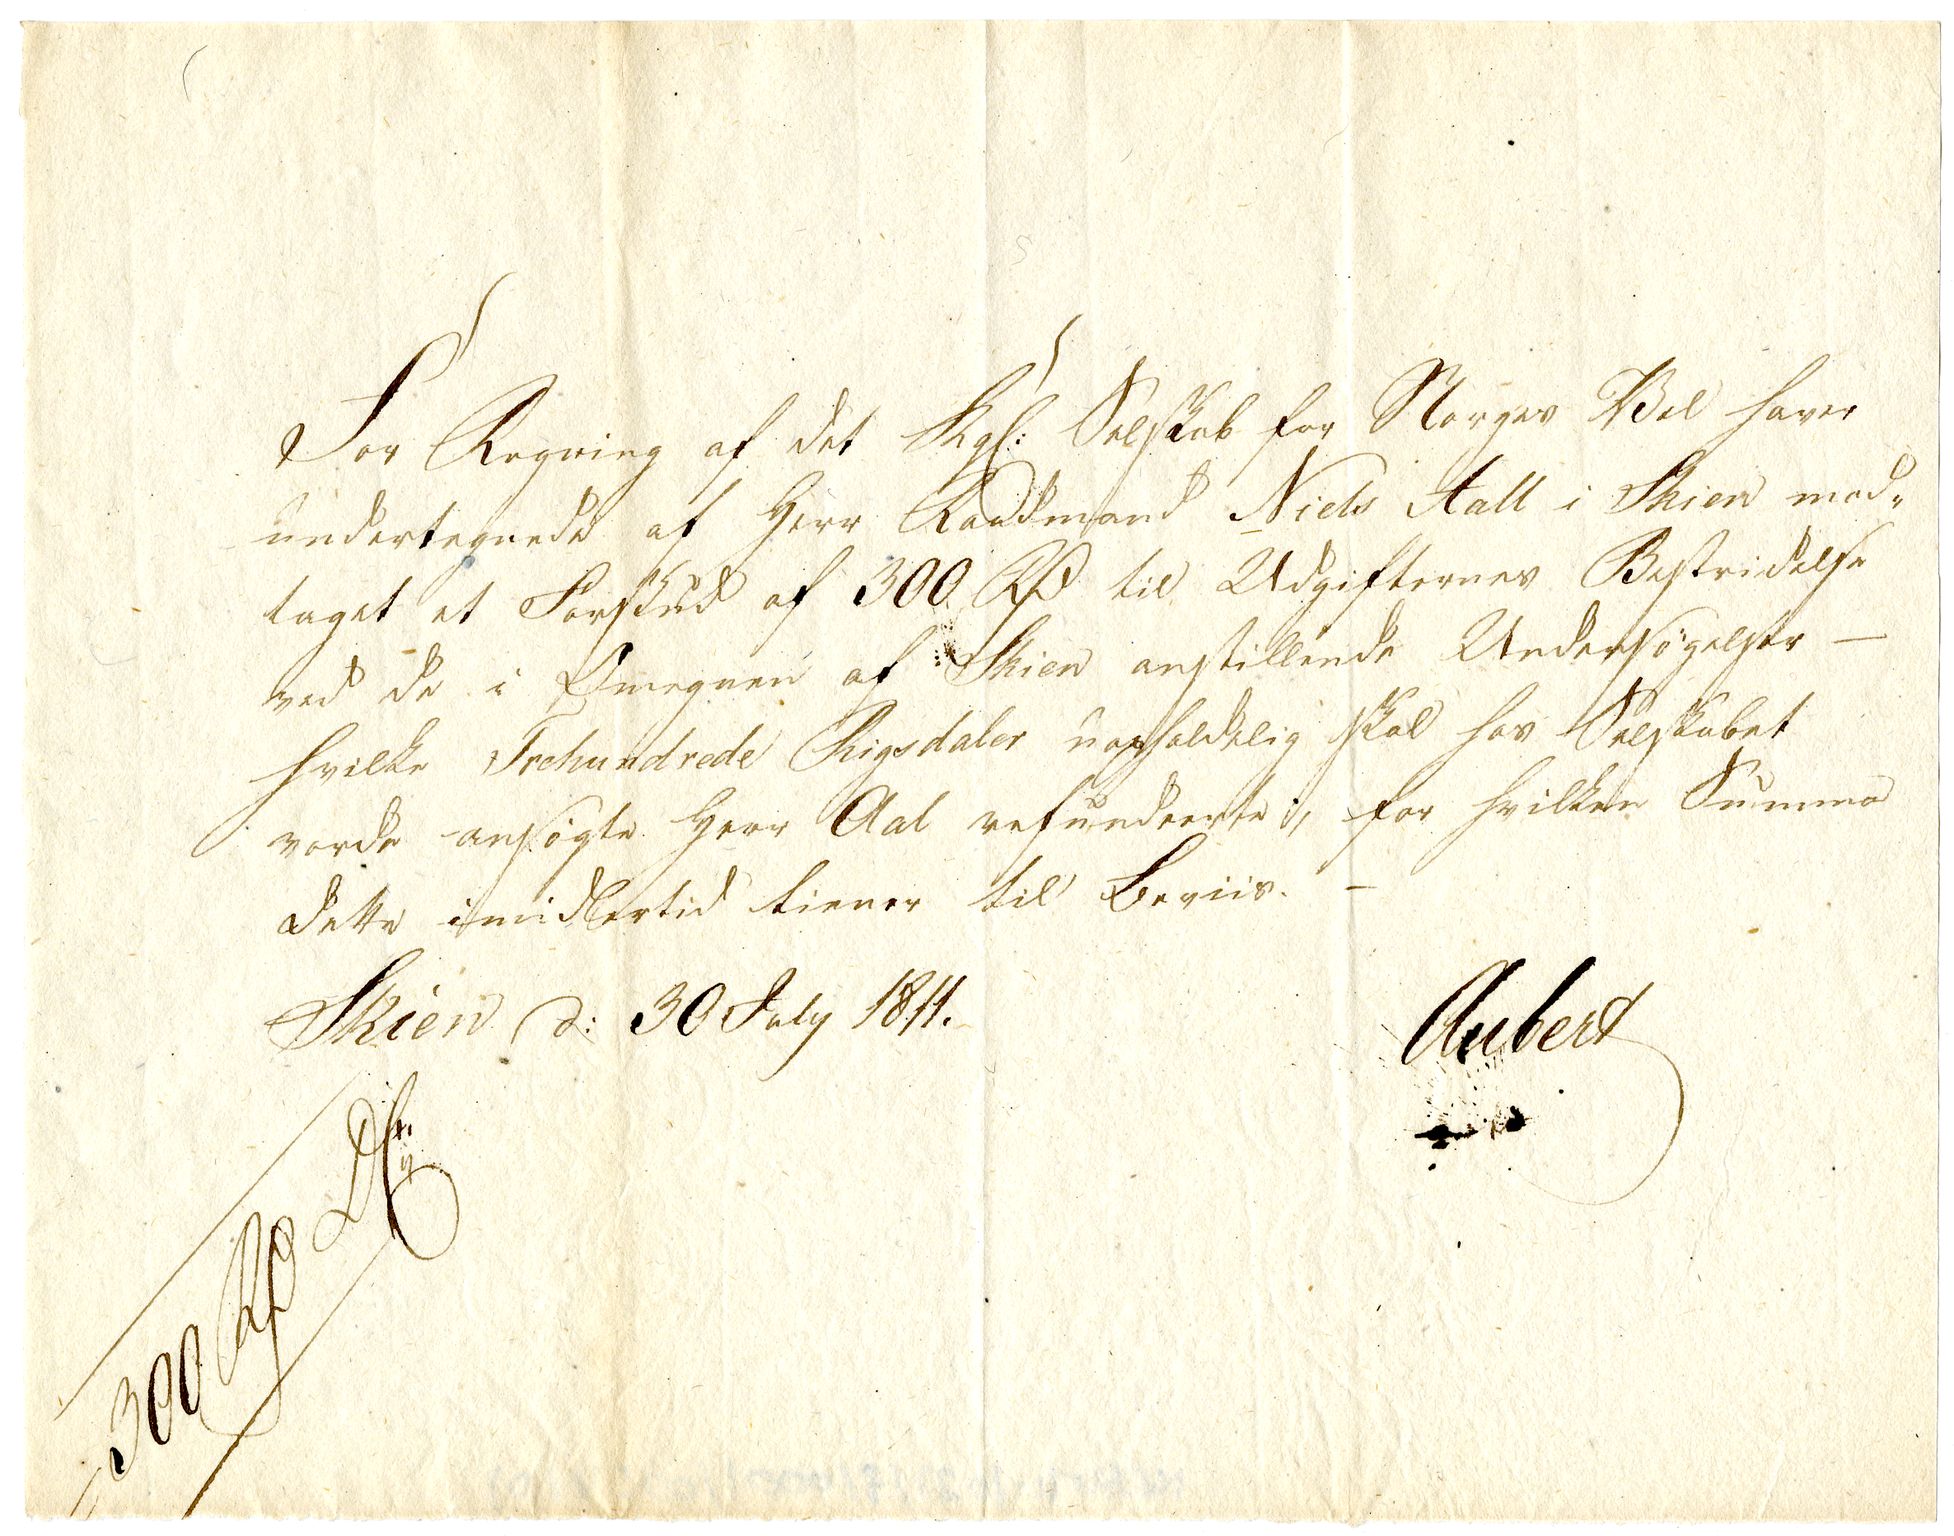 For Regning af det Kgl: Selskab for Norges Vel haver
undertegnede af Herr Raadmand Niels Aall i Skien mod-
taget et Forskud af 300 Rd til Udgifternes Bestridelse
ved de i Omegnen af Skien anstillende Undersøgelser —
hvilke Trehundrede Rigsdaler uopholdelig skal hos Selskabet
vorde ansøgte Herr Aal refunderte, for hvilken Summa
dette imidlertid tiener til Beviis. —
Skien d: 30 July 1811.
Aubert
300 Rd